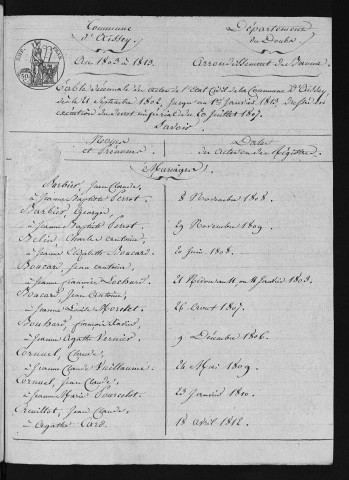 Commune
d'Aïssey
Département
du Doubs
An 1803 à 1813.
Arrondissement de Baume
Table décennale des actes de l'Etat Civil de la Commune d'Aïssey,
dès le 21 Septembre 1802, jusqu'au 1er Janvier 1813. Dressée en
exécution du décret impérial du 20 Juillet 1807.
Savoir
Noms
et Prénoms
Dates
des actes ou des Registres.
Mariages.
Barbier, Jean Claude,
à Jeanne Baptiste Perrot. 8 Novembre 1808.
Barbier, Georges,
à Jeanne Baptiste Perrot. 29 Novembre 1809.
Belin, Charles Antoine,
à Jeanne Elizabeth Boucard. 20 Juin 1808.
Boucard, Jean Antoine,
à Jeanne Françoise Lochard. 21 Nivose an 11 ou 11 Janvier 1803.
Boucard, Jean Antoine,
à Jeanne Morelet 26 Aout 1807.
Bouhard, François Xavier
à Jeanne Agathe Vernier 9 Décembre 1806.
Cornuel, Claude,
à Jeanne Claude Vuillaume 24 Mai 1809
Cornuel, Jean Claude,
à Jeanne Marie Pourcelot. 23 Janvier 1810.
Creuillot, Jean Claude,
à Agathe Card. 18 Avril 1812.